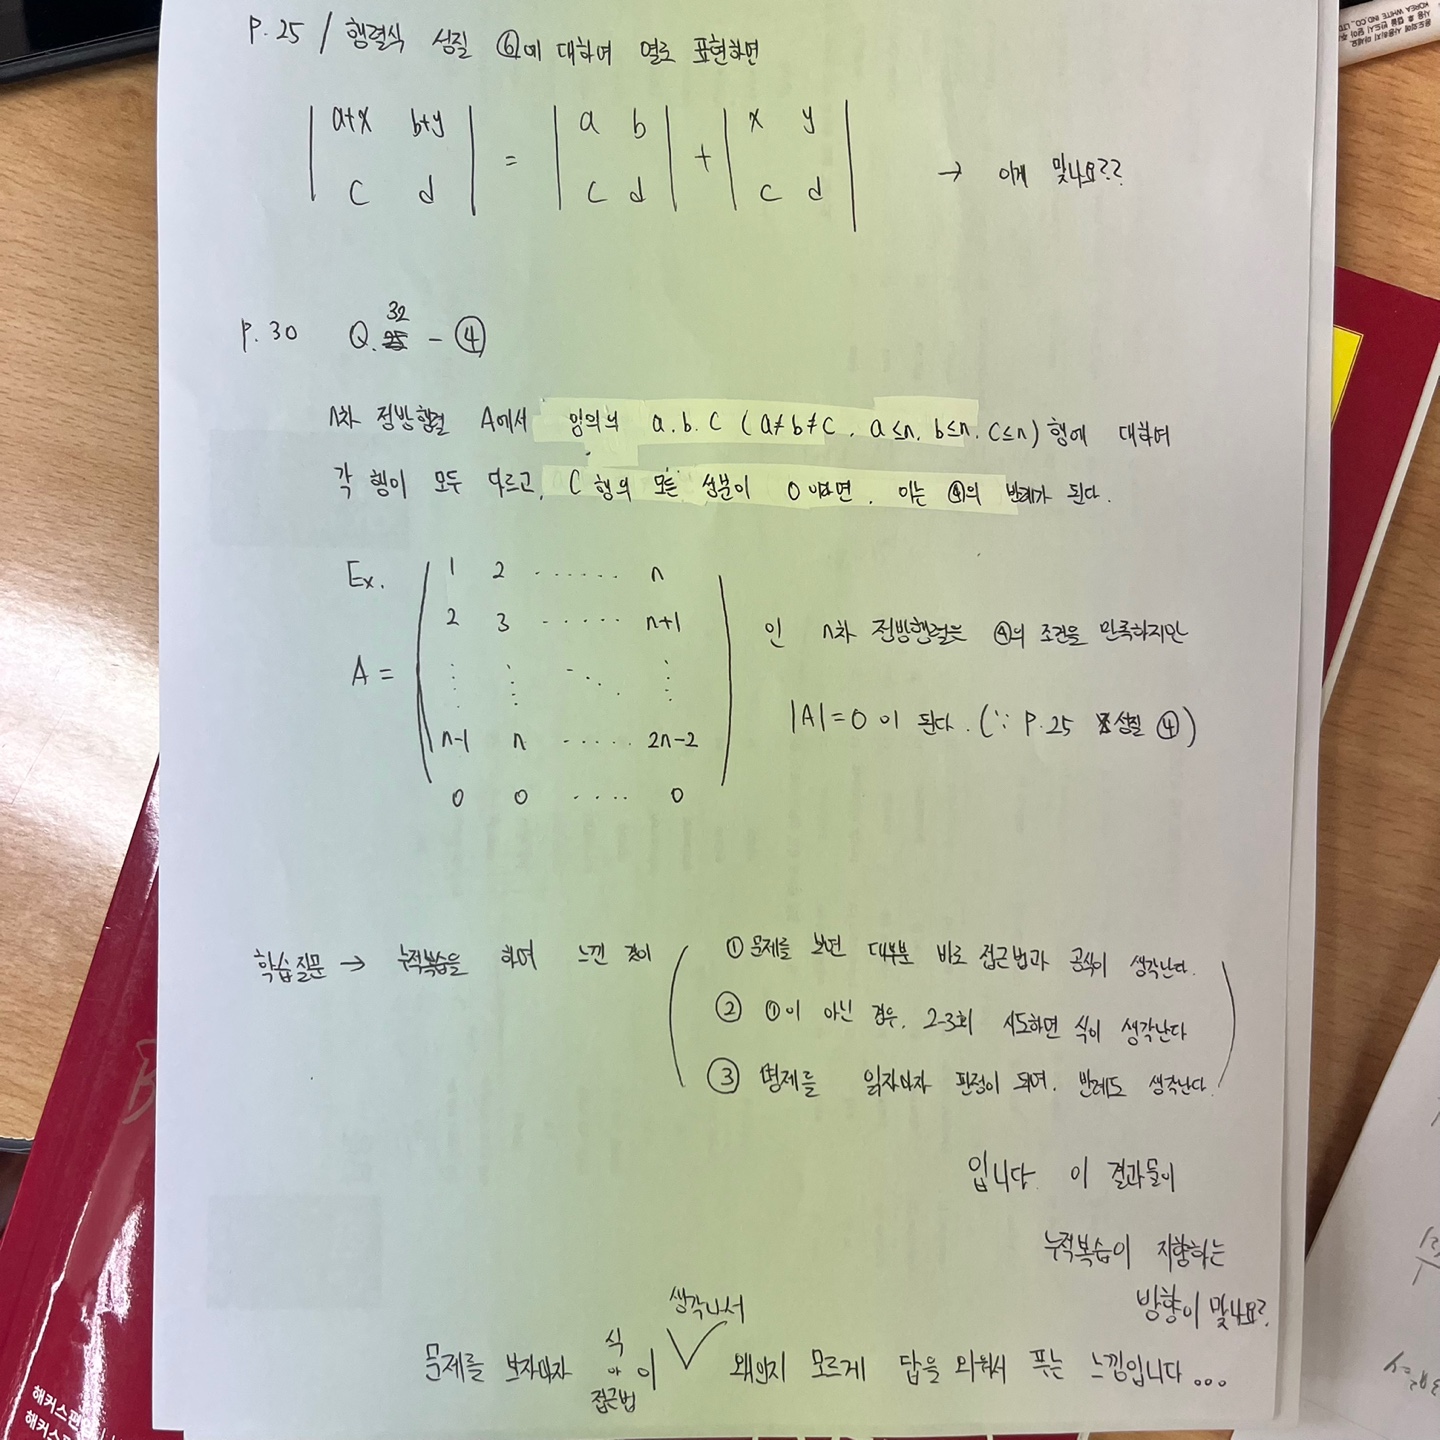 P.25 / 행렬식 성질 ⑥에 대하여 열로 표현하면
| a+x b+y | = | a b | + | x y |
| c d | | c d | | c d | → 이게 맞나요??
P.30 Q.32 - ④
n차 정방행렬 A에서 임의의 a.b.c (a≠b≠c, a≤n, b≤n, c≤n) 행에 대하여
각 행이 모두 다르고, C 행의 모든 성분이 0 이라면, 이는 ④의 반례가 된다.
Ex.
A =
1 2 ······ n
2 3 ······ n+1
⋮ ⋮ ⋱ ⋮
n-1 n ······ 2n-2
0 0 ···· 0
인 n차 정방행렬은 ④의 조건을 만족하지만
|A|=0 이 된다. (∵ P.25 성질 ④)
학습질문 → 누적복습을 하여 느낀 것이
① 문제를 보면 대부분 바로 접근법과 공식이 생각난다.
② ①이 아닌 경우, 2-3회 시도하면 식이 생각난다
③ 명제를 읽자마자 판정이 되며, 반례도 생각난다.
입니다. 이 결과들이
누적복습이 지향하는
방향이 맞나요?
문제를 보자마자 식 or 접근법 이 생각나서 왜인지 모르게 답을 외워서 푸는 느낌입니다...
해커스편
해커스편
KOREA WHITE IND.CO., LTD